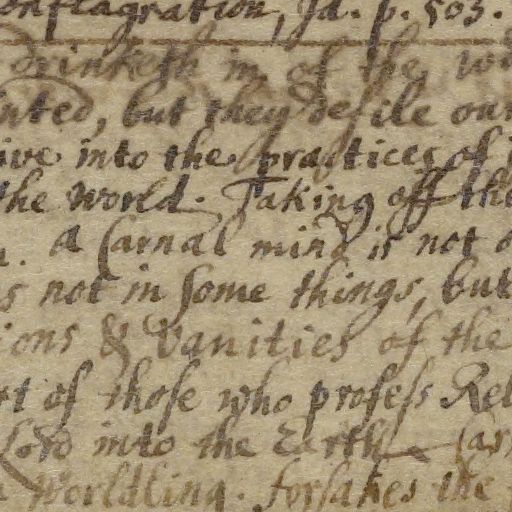 onflagration, Id. p. 503.
drinketh in of the
nted, but they defile our
ive into the practices of
the World. Taking off the
A Carnal mind is not
s not in some things, but
ions & Vanities of the
rt of those who profess Rel
Lord into the Earth. Car
Worldling. forsakes the